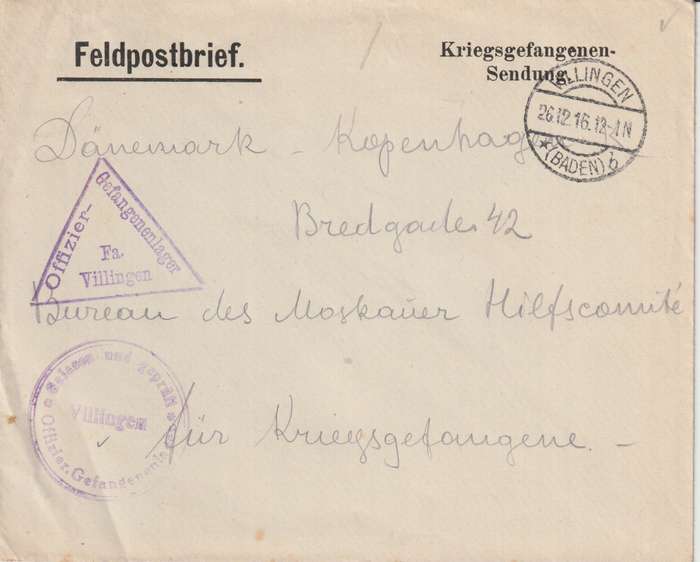 Feldpostbrief.
Kriegsgefangenen-
Sendung.
VILLINGEN
26.12.16.12-1N
★(BADEN) b
Dänemark - Kopenhagen
Bredgade 42
Offizier-
Gefangenenlager
Fa.
Villingen
Bureau des Moskauer Hilfscomité
Gelesen und geprüft
Villingen
Offizier.Gefangenenla
für Kriegsgefangene. -